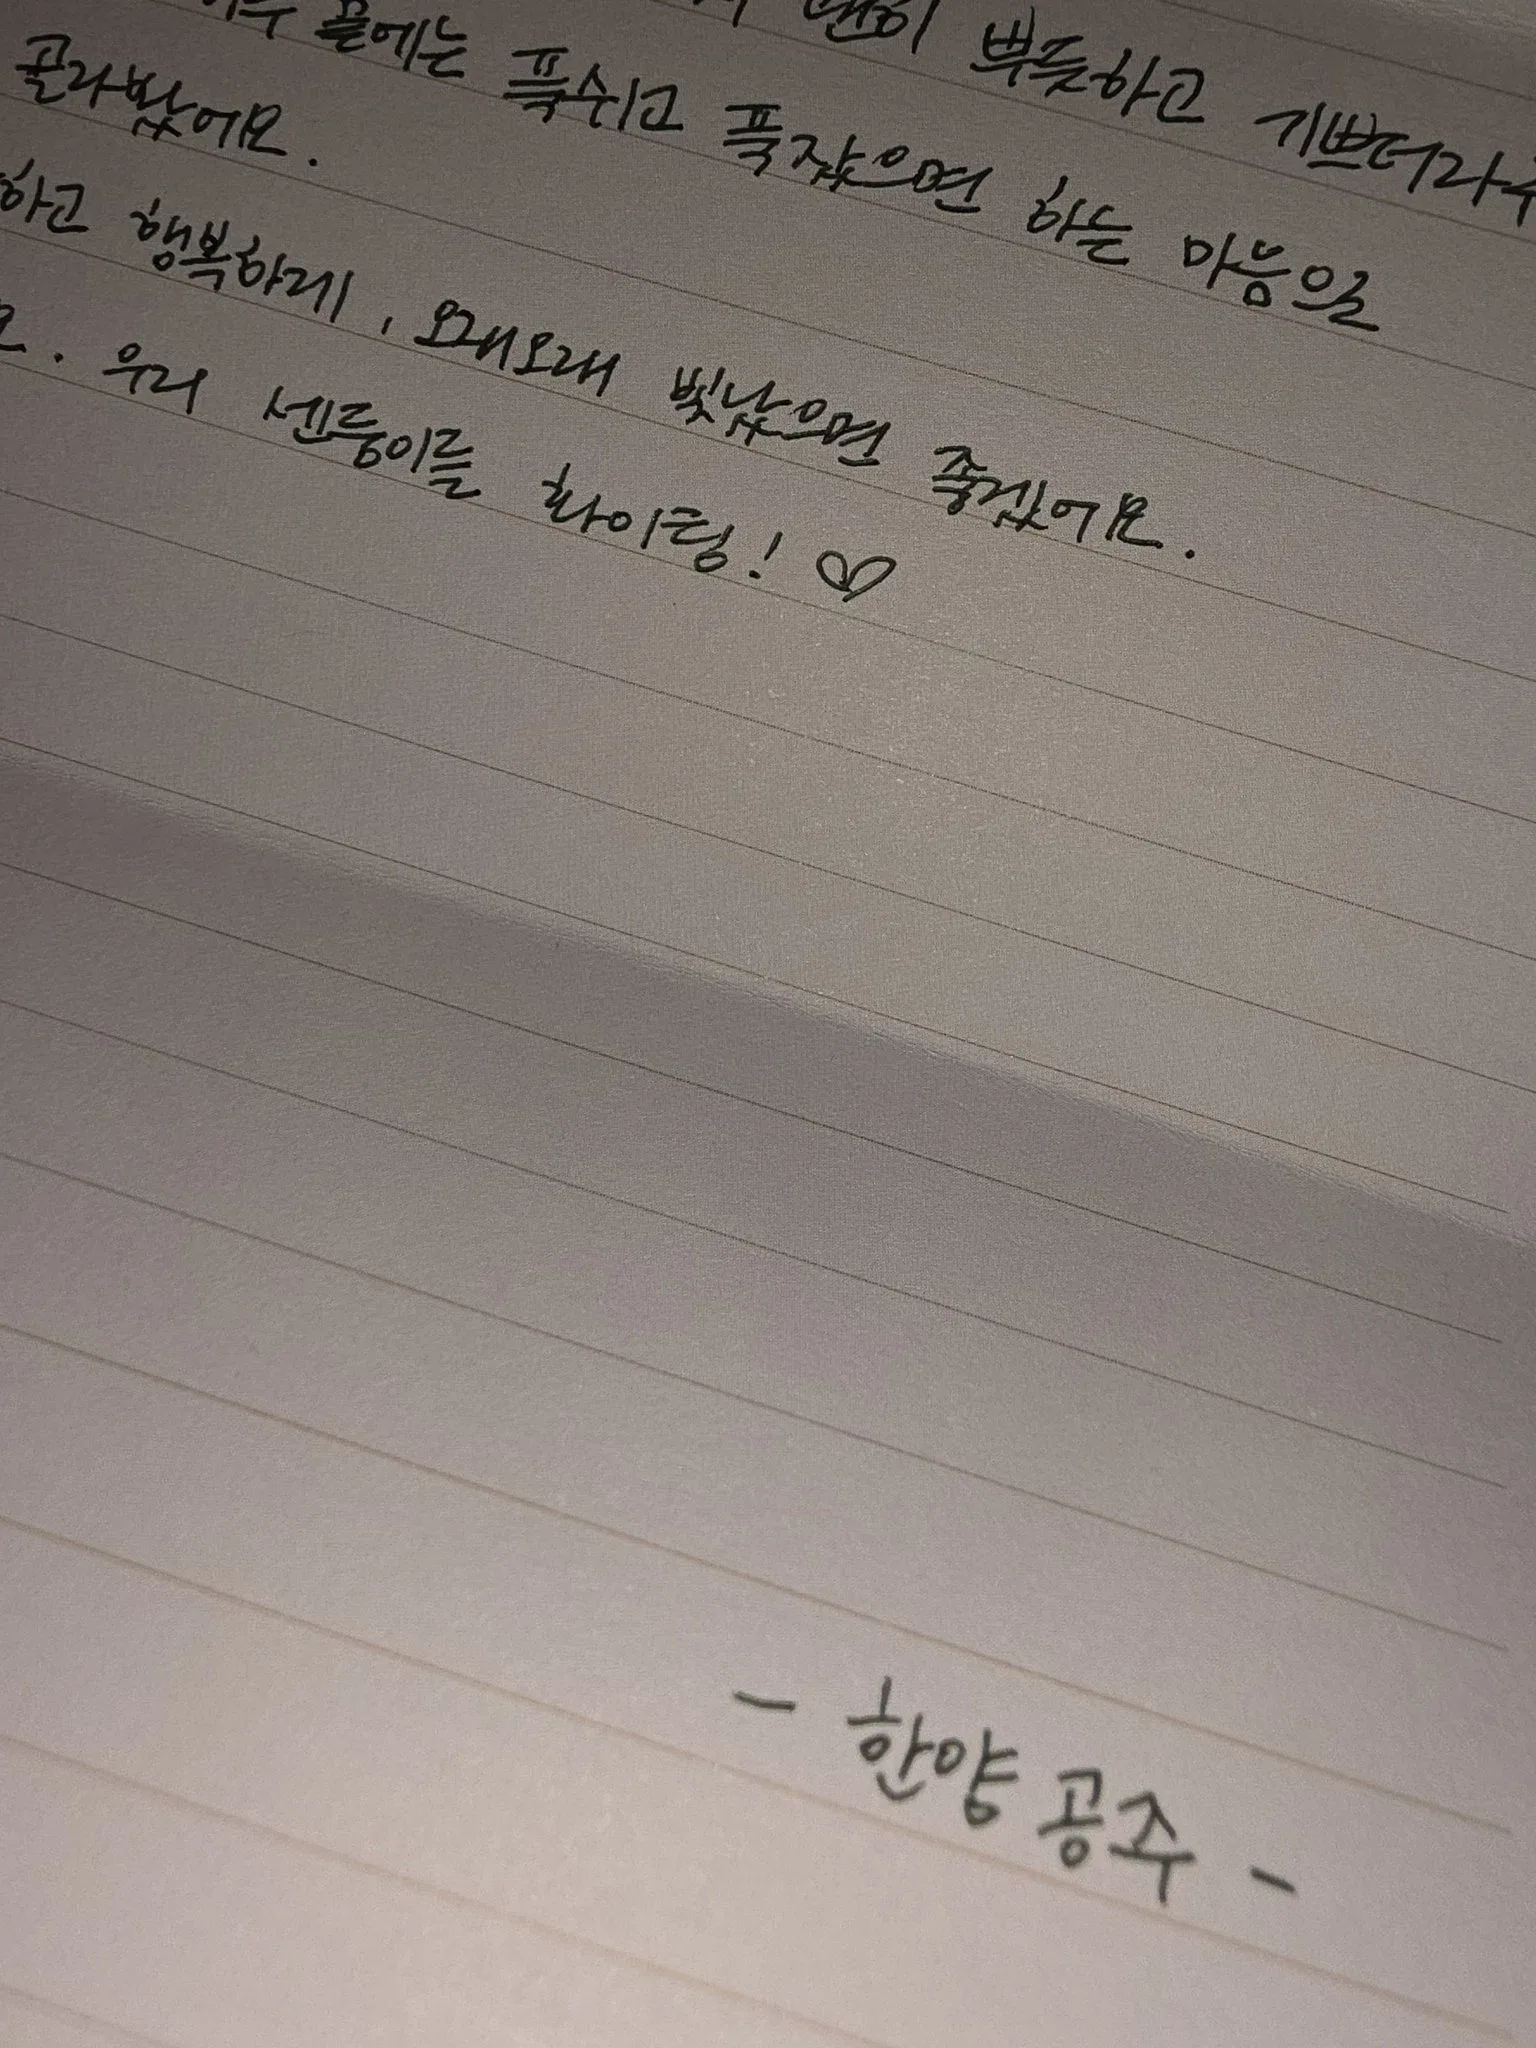 괜히 뿌듯하고 기쁘더라구
끝에는 푹쉬고 푹잤으면 하는 마음을
골라봤어요.
하고 행복하게, 오래오래 빛났으면 좋겠어요.
요. 우리 센둥이들 화이팅! ♡
- 한양 공주 -